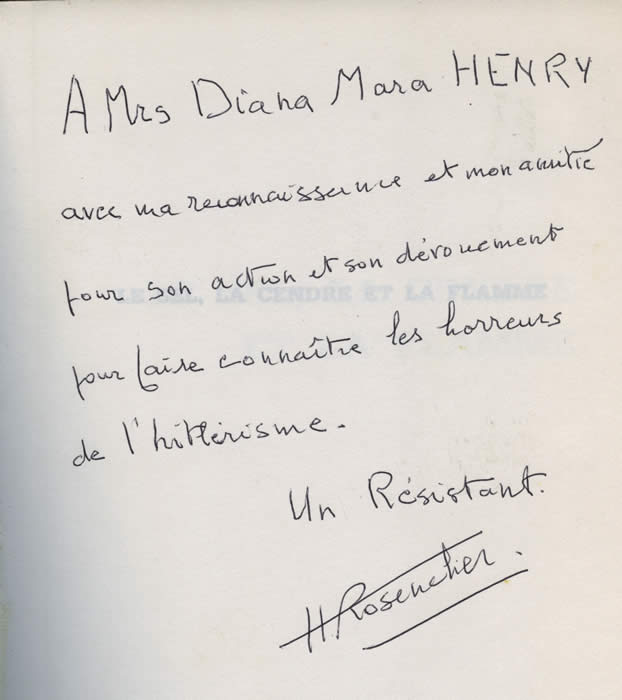 A Mrs Diana Mara HENRY
avec ma reconnaissance et mon amitié
pour son action et son dévouement
LE SEL, LA CENDRE ET LA FLAMME
pour faire connaître les horreurs
de l'hitlérisme.
Un Résistant.
H Rosencher.